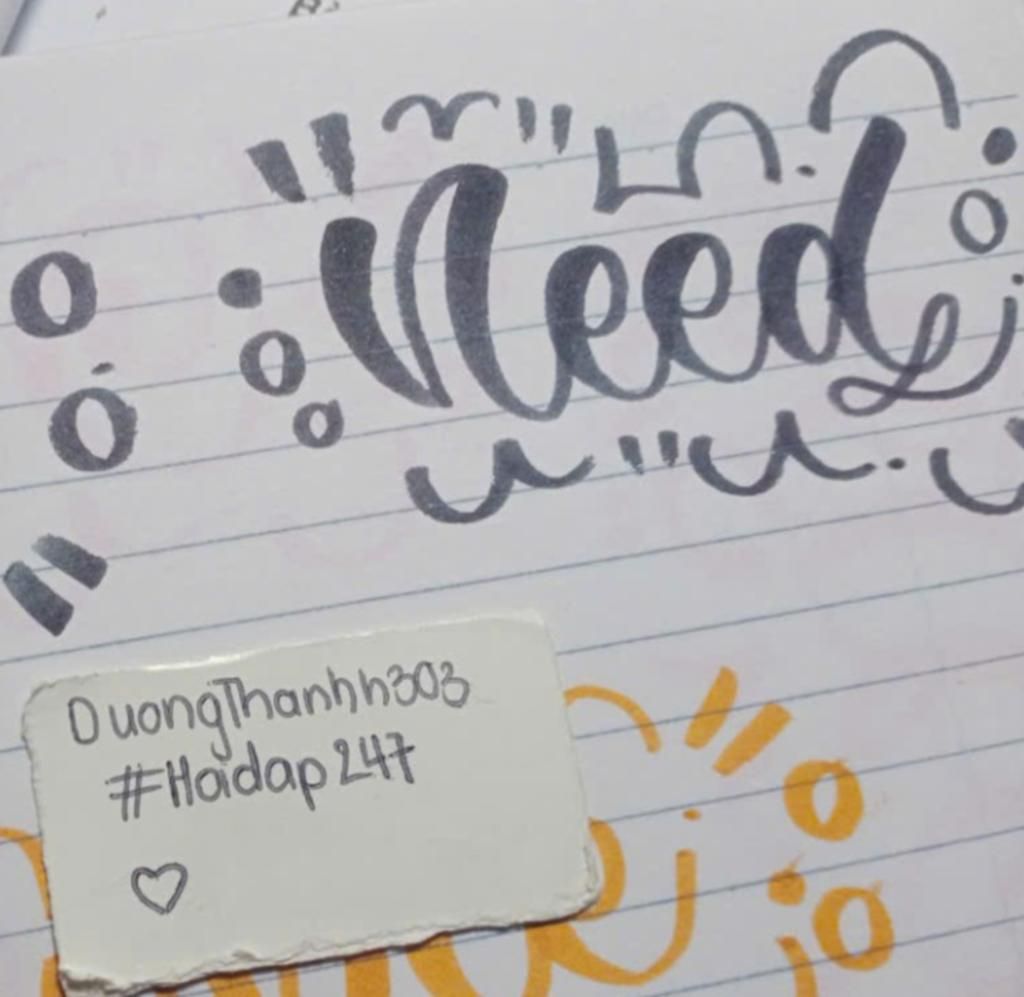 Need
DuongThanhh303
#Hoidap247